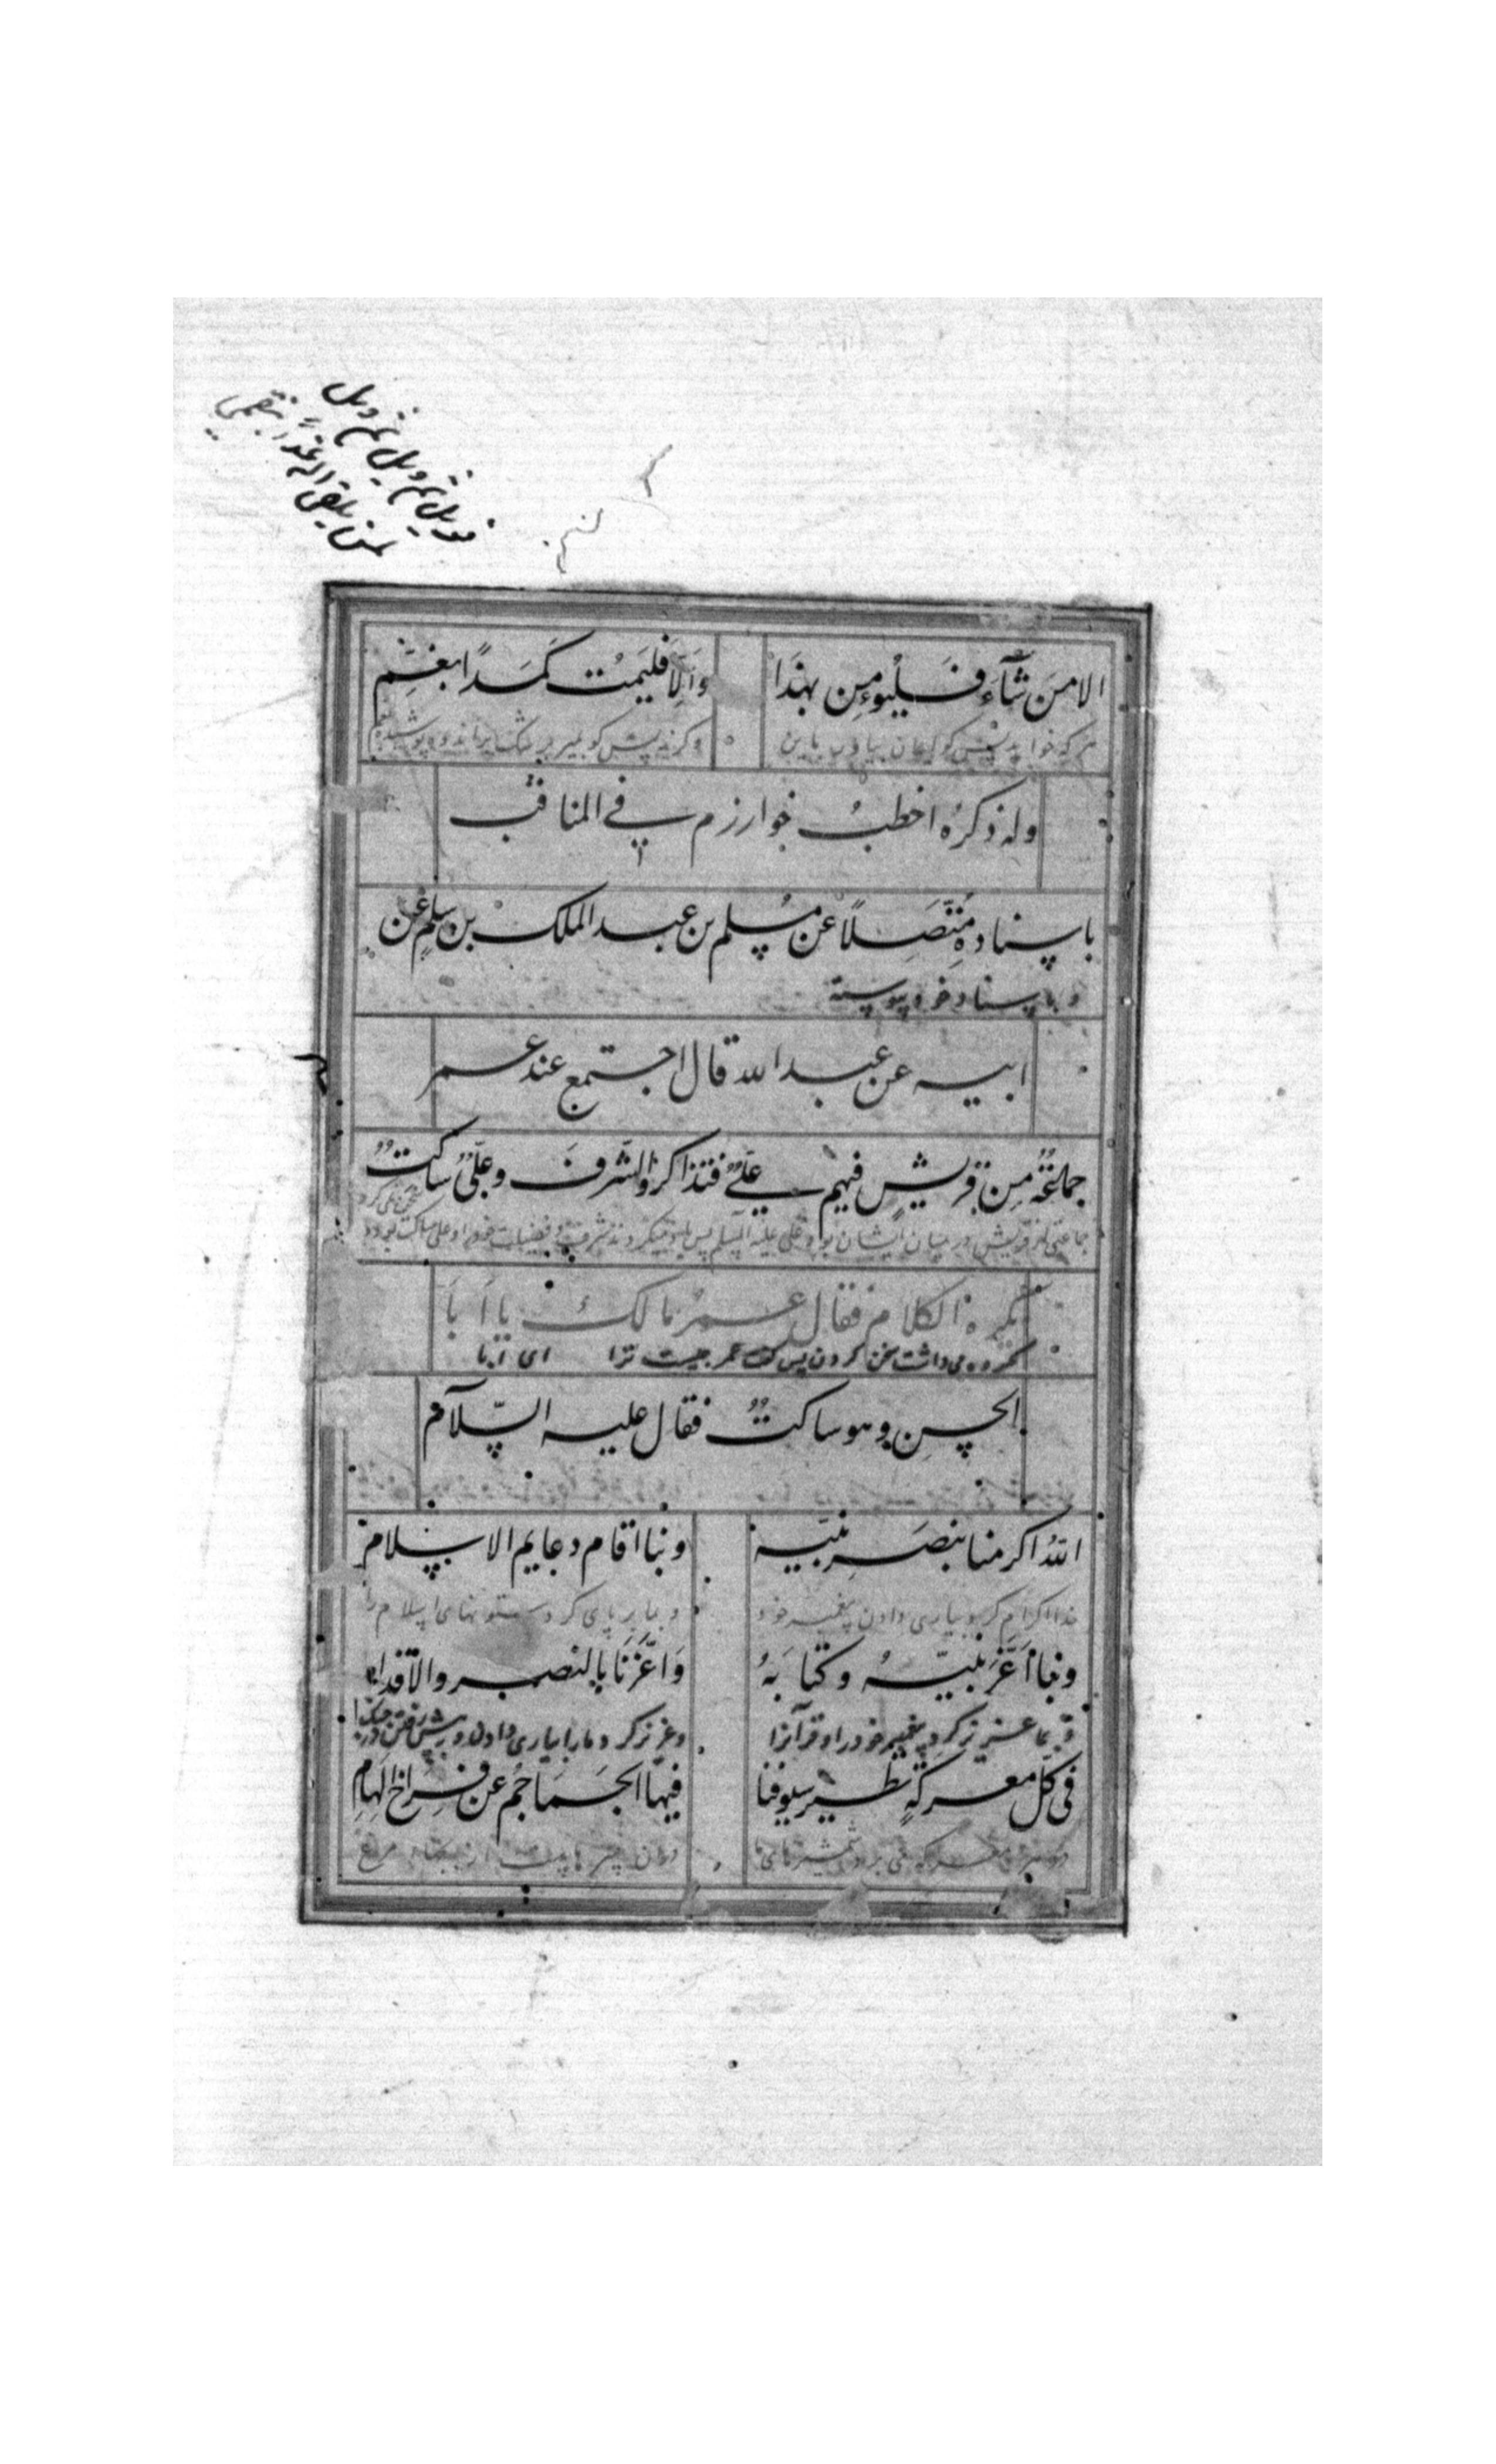 فويل ثم ويل ثم ويل
لمن يلقى الاله غدا بظلمي
الا من شآء فليؤمن بهذا وَالّا فليمُت كَمَدًا بغمّ
هر که خواهد پس کو ایمان بیاور باین وکرنه پس کو بمیر
وله ذكرُه اخطبُ خوارزم في المناقب
باسناده مُتّصلًا عن مسلم بن عبد الملك بن سلم عن
و باسناد خود پیوسته
ابيه عن عبد الله قال اجتمع عند عمر
جماعةٌ من قريشٍ فيهم عليٌّ فتذاكروا الشّرفَ وعليٌّ ساكتٌ
جماعتی از قریش در میان ایشان بود علی علیه السلم پس یاد میکردند شرف و فضیلت خود را و علی ساکت بود
يكره الكلام فقال عمرُ مالكَ يا أبا
مکروه می داشت سخن کردن پس کفت عمر چیست ترا ای ابا
الحسن وهو ساكتٌ فقال عليه السّلام
اللهُ اكرمنا بنصر نبيّه وبنا اقام دعايم الاسلام
خدا اکرام کرد بیاری دادن پیغمبر خود و بما بر پای کرد ستونهای اسلام را
وبنا أعَزَّ نبيّهُ وكتابَهُ وَاَعَزَّنَا بالنصر والاقدام
و بما عزیز کرد پیغمبر خود را و قرآنرا و عزیز کرد ما را بیاری دادن و پیش رفتن در جنک
في كلّ معركةٍ تطير سيوفنا فيها الجماجم عن فراخ الهامِ
در هر معرکه می پرد شمشیرهای ما